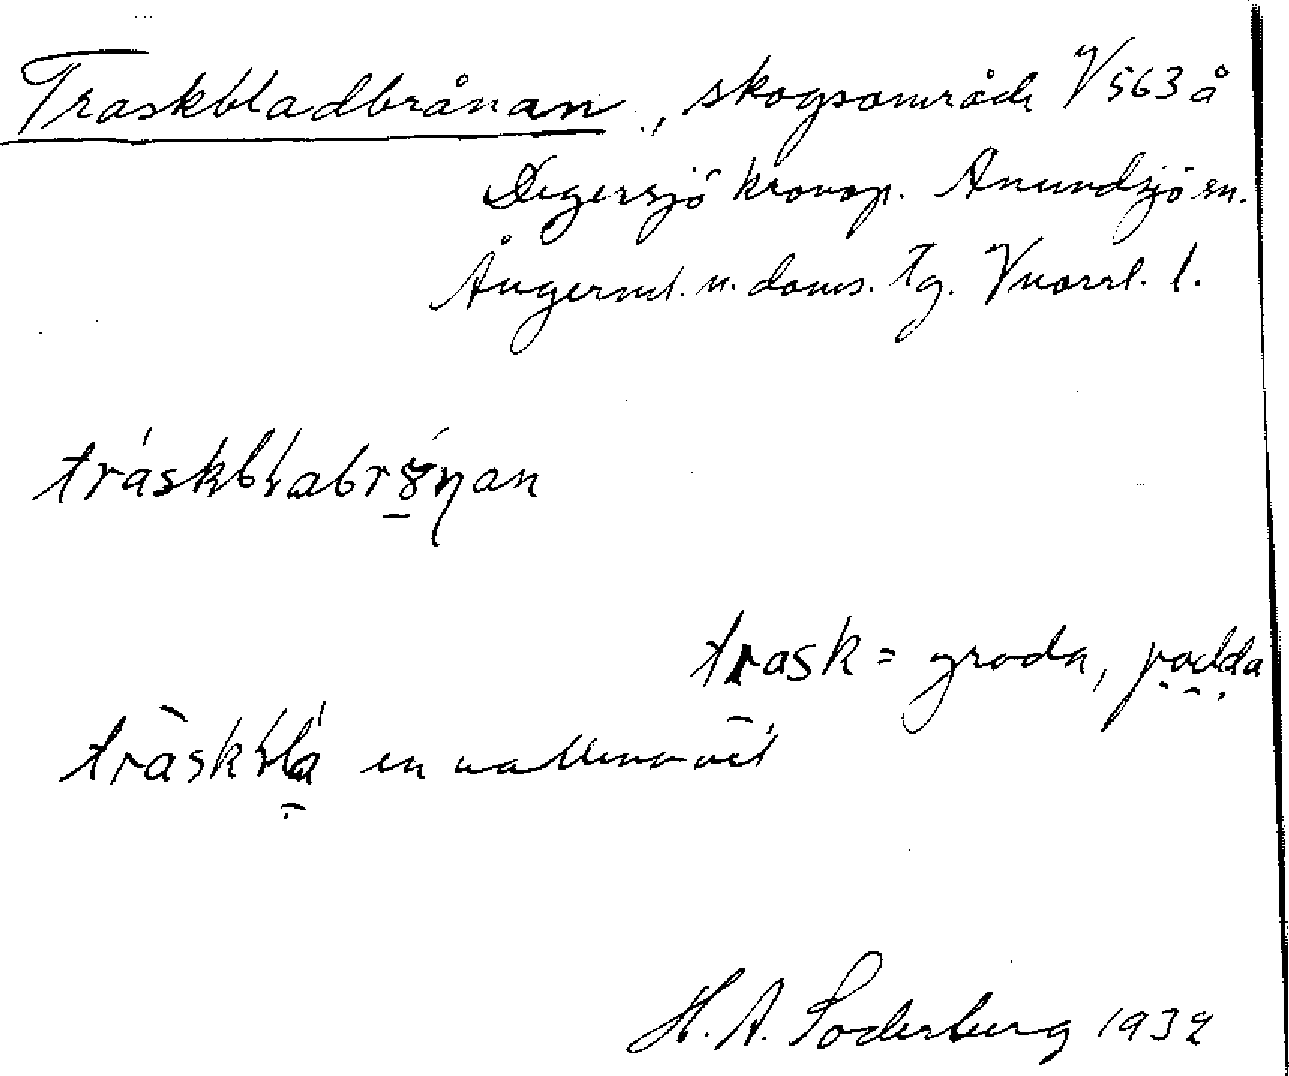 Traskbladbrånan, skogsområde V 563 å
Degersjö kronop. Anundsjö sn.
Ångerml. n. doms. Tg. Vnorrl. l.
trask = groda, padda
en vattenväxt
H. A. Söderberg 1932